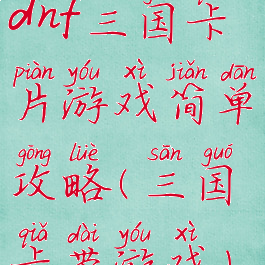 dnf三国卡
piàn yóu xì jiǎn dān
片游戏简单
gōng lüè sān guó
攻略(三国
qiǎ dài yóu xì
卡带游戏)